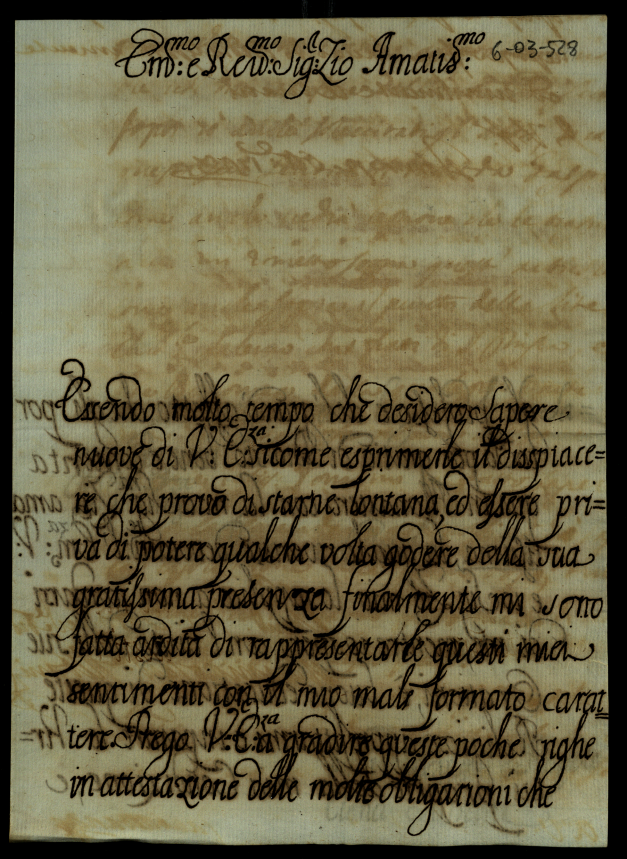 Em̅: mo e Reve̅: mo Sig: r Zio Amatis: mo 6-03-528
Essendo molto tempo che desidero Sapere
nuove di V: E: za sicome esprimerle il disspiace=
re che provo di starne lontana, ed essere pri=
va di potere qualche volta godere della Sua
gratissima presenza finalmente mi sono
fatta ardita di rappresentarle questi miei
sentimenti con il mio male formato carat=
tere. Prego V: E: za a gradire queste poche righe
in attestazione delle molte obligazioni che